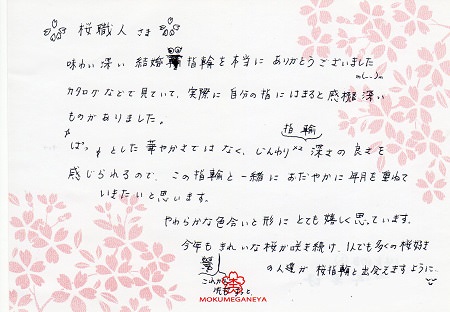 桜職人さま
味わい深い 結婚指輪を本当に ありがとうございました
m(..)m
カタログなどで見ていて、実際に 自分の指に はまると感慨深い
ものがありました。
指輪
"ぱっ"とした華やかさではなく、じんわり 深さの良さを
感じられるので、この指輪と一緒に おだやかに年月を重ねて
いきたいと思います。
やわらかな色合いと形に とても嬉しく思っています。
今年も きれいな桜が咲き続け、1人でも多くの桜好き
の人達が 桜指輪と出会えますように
これから
MOKUMEGANEYA